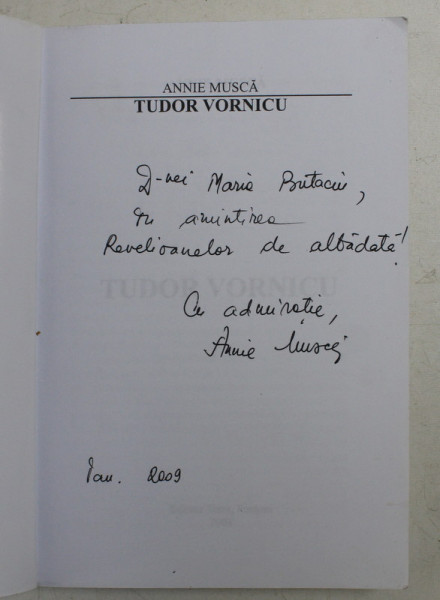 ANNIE MUSCĂ
TUDOR VORNICU
D-nei Maria Butaciu,
în amintirea
Revelioanelor de altădată!
Cu admirație,
Annie Muscă
TUDOR VORNICU
Ian. 2009